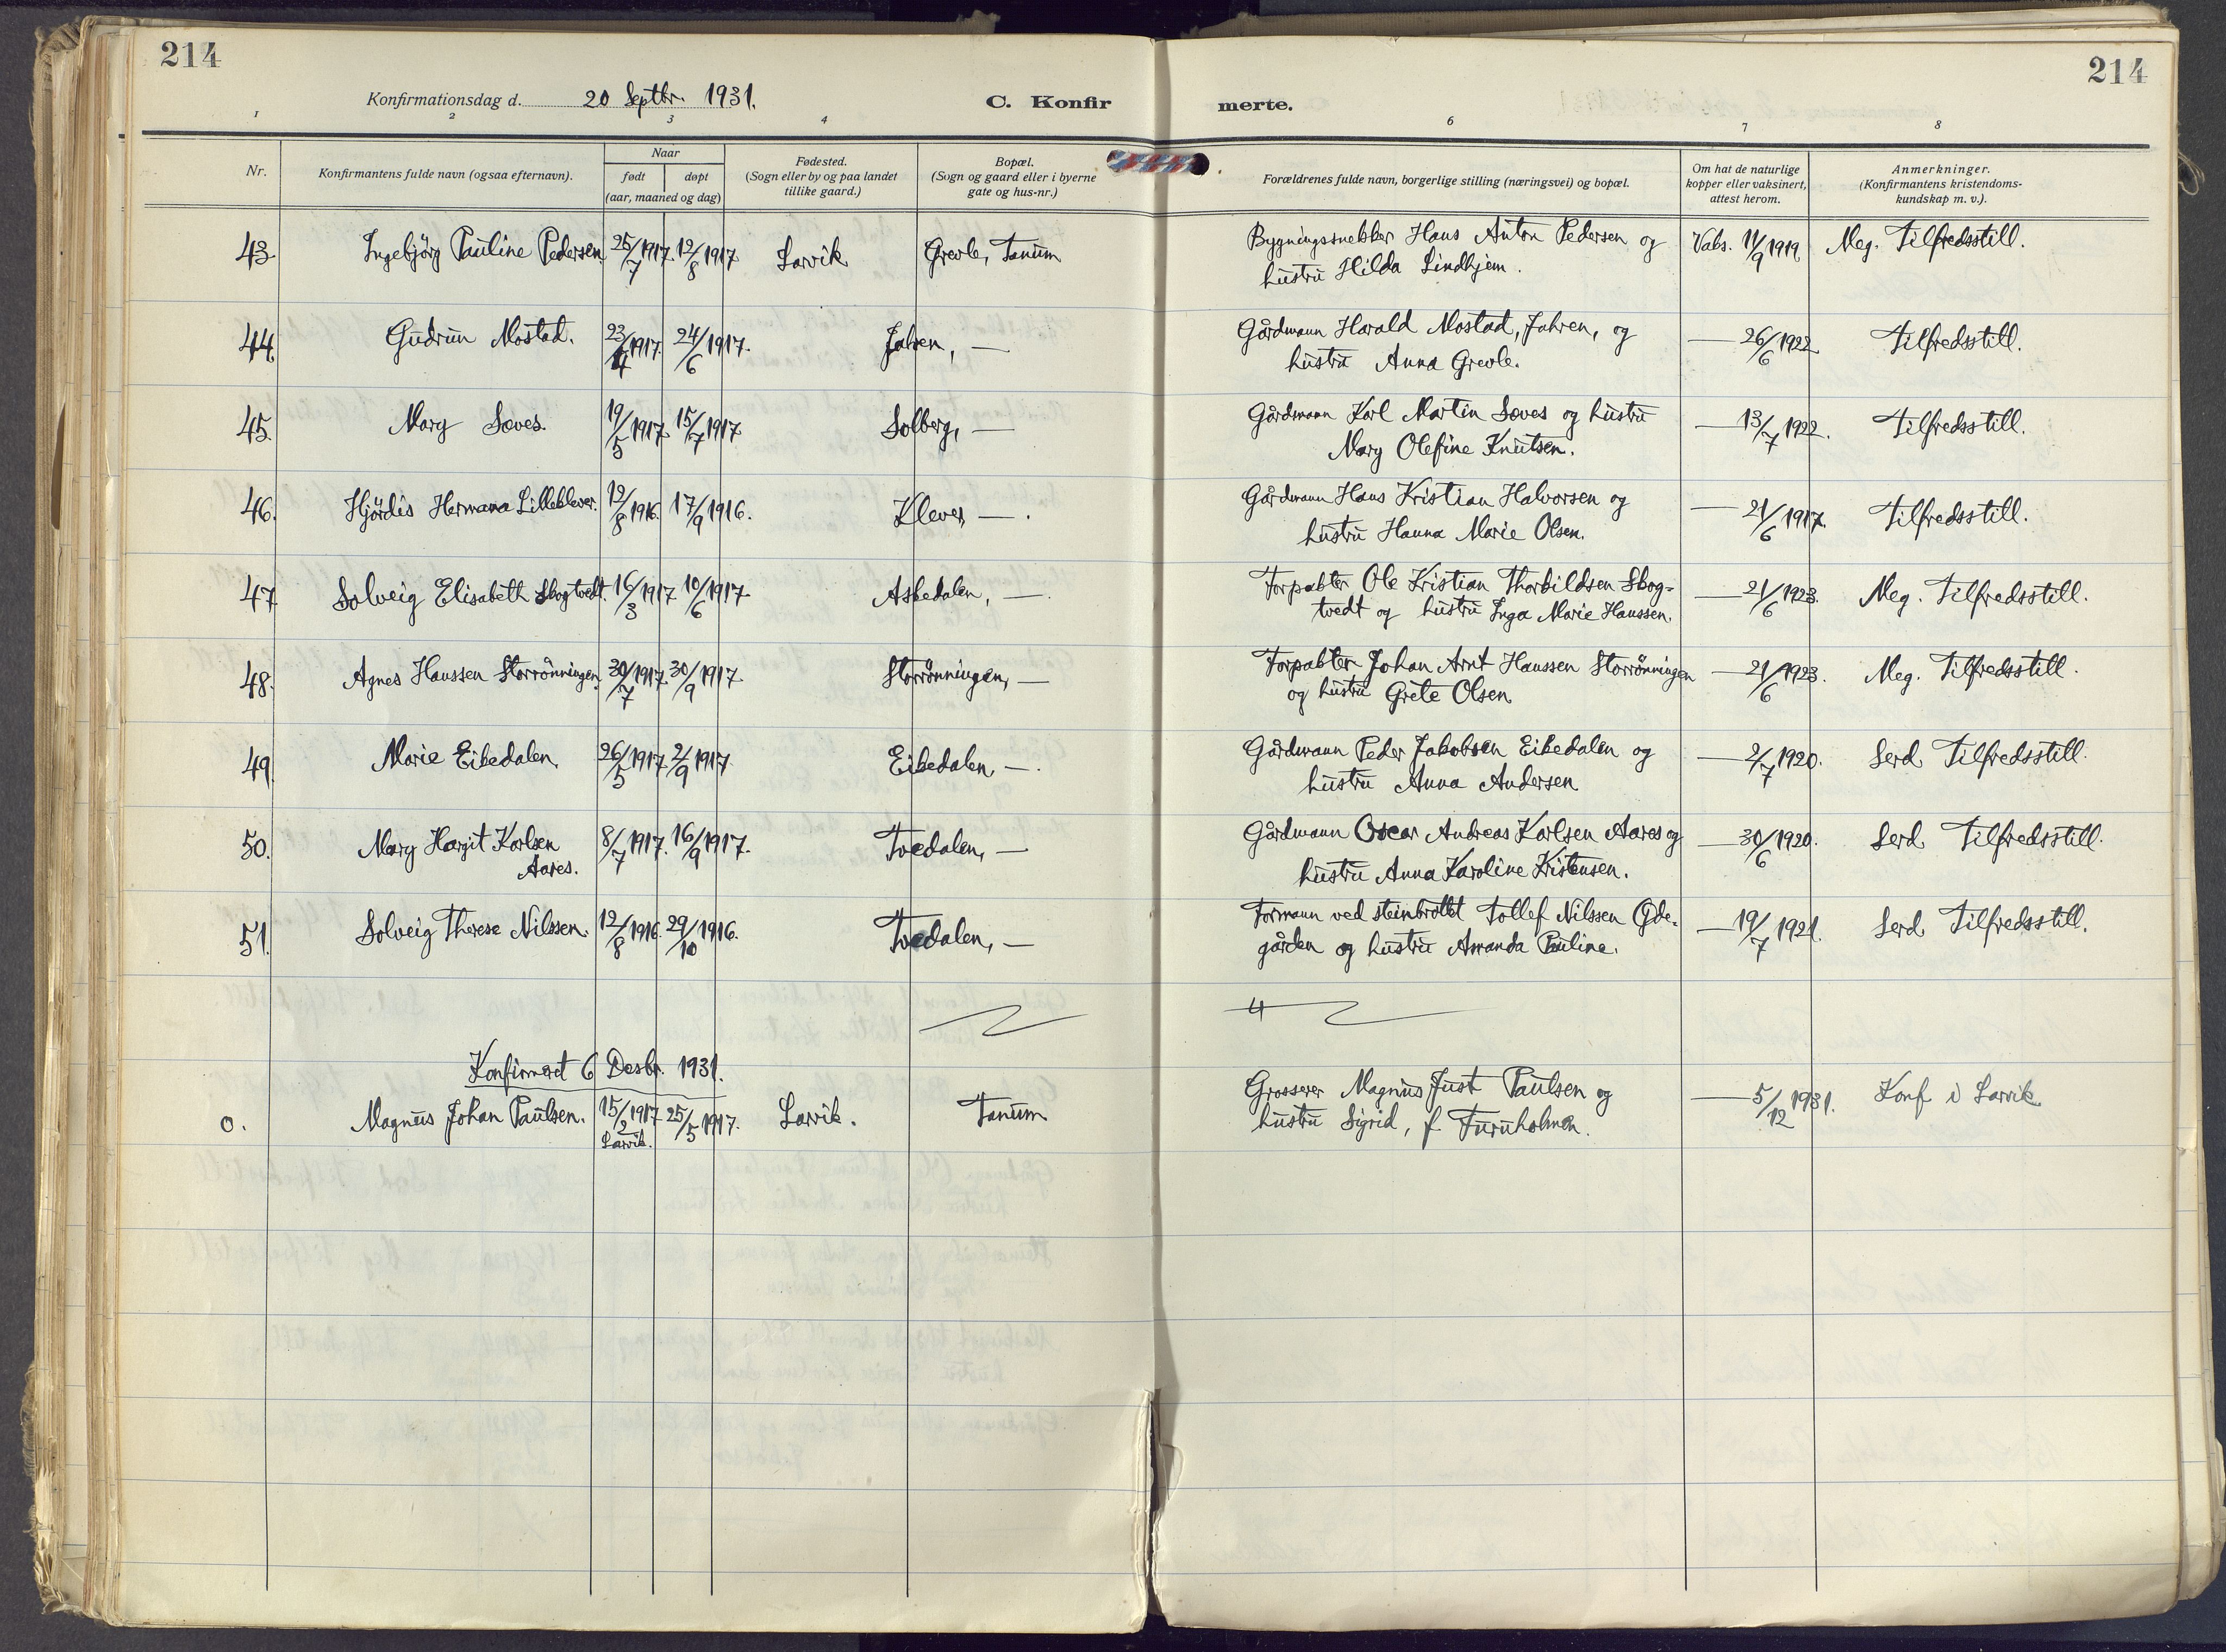 214
214
Konfirmationsdag d. 20 Septbr. 1931.
C. Konfir
merte.
1 2 3 4 6 7 8
Nr.
Konfirmantens fulde navn (ogsaa efternavn).
Naar
født døpt
(aar, maaned og dag)
Fødested.
(Sogn eller by og paa landet
tillike gaard.)
Bopæl.
(Sogn og gaard eller i byerne
gate og hus-nr.)
Forældrenes fulde navn, borgerlige stilling (næringsvei) og bopæl.
Om hat de naturlige
kopper eller vaksinert,
attest herom.
Anmerkninger.
(Konfirmantens kristendoms-
kundskap m. v.).
43. Ingebjörg Pauline Pedersen. 25/7 1917. 12/8 1917 Larvik Grevle, Tanum Bygningssnekker Hans Anton Pedersen og Vaks. 11/9 1919. Meg. Tilfredsstill.
hustru Hilda Lindhjem.
44. Gudrun Mostad. 23/4 1917. 24/6 1917. Jahren, — Gårdmann Harald Mostad, Jahren, og — 26/6 1922. Tilfredsstill.
hustru Anna Grevle.
45. Mary Soves. 19/5 1917. 15/7 1917 Solberg, — Gårdmann Karl Martin Soves og hustru — 13/7 1922. Tilfredsstill.
Mary Olefine Knutsen.
46. Hjördis Hermana Lilleklever. 12/8 1916. 17/9 1916. Klever, —. Gårdmann Hans Kristian Halvorsen og — 21/6 1917. Tilfredsstill.
hustru Hanna Marie Olsen.
47. Solveig Elisabeth Skogtvedt. 16/3 1917 10/6 1917. Askedalen, —. Forpakter Ole Kristian Thorkildsen Skog- — 21/6 1923. Meg. Tilfredsstill.
tvedt og hustru Inga Marie Hanssen.
48. Agnes Hanssen Storrönningen. 30/7 1917. 30/9 1917. Storrönningen, — Forpakter Johan Arnt Hanssen Storrönningen — 21/6 1923. Meg. Tilfredsstill.
og hustru Grete Olsen.
49. Marie Eikedalen. 26/5 1917. 2/9 1917. Eikedalen, —. Gårdmann Peder Jakobsen Eikedalen og — 2/7 1920. Serd. Tilfredsstill.
hustru Anna Andersen
50. Mary Hargit Karlsen 8/7 1917. 16/9 1917. Tvedalen, — Gårdmann Oscar Andreas Karlsen Aares og — 30/6 1920. Serd. Tilfredsstill.
Aares.
hustru Anna Karoline Kristensen.
51. Solveig Therese Nilssen. 12/8 1916. 29/10 1916. Tvedalen, — Formann ved steinbrottet Tollef Nilssen Öde- — 19/7 1921. Serd Tilfredsstill.
gården og hustru Amanda Pauline.
Konfirmeret 6 Desbr. 1931.
0. Magnus Johan Paulsen. 15/2 1917 25/5 1917. Larvik. Tanum Grosserer Magnus Just Paulsen og — 5/12 1931. Konf i Larvik
Larvik.
hustru Sigrid, f. Furuholmen.